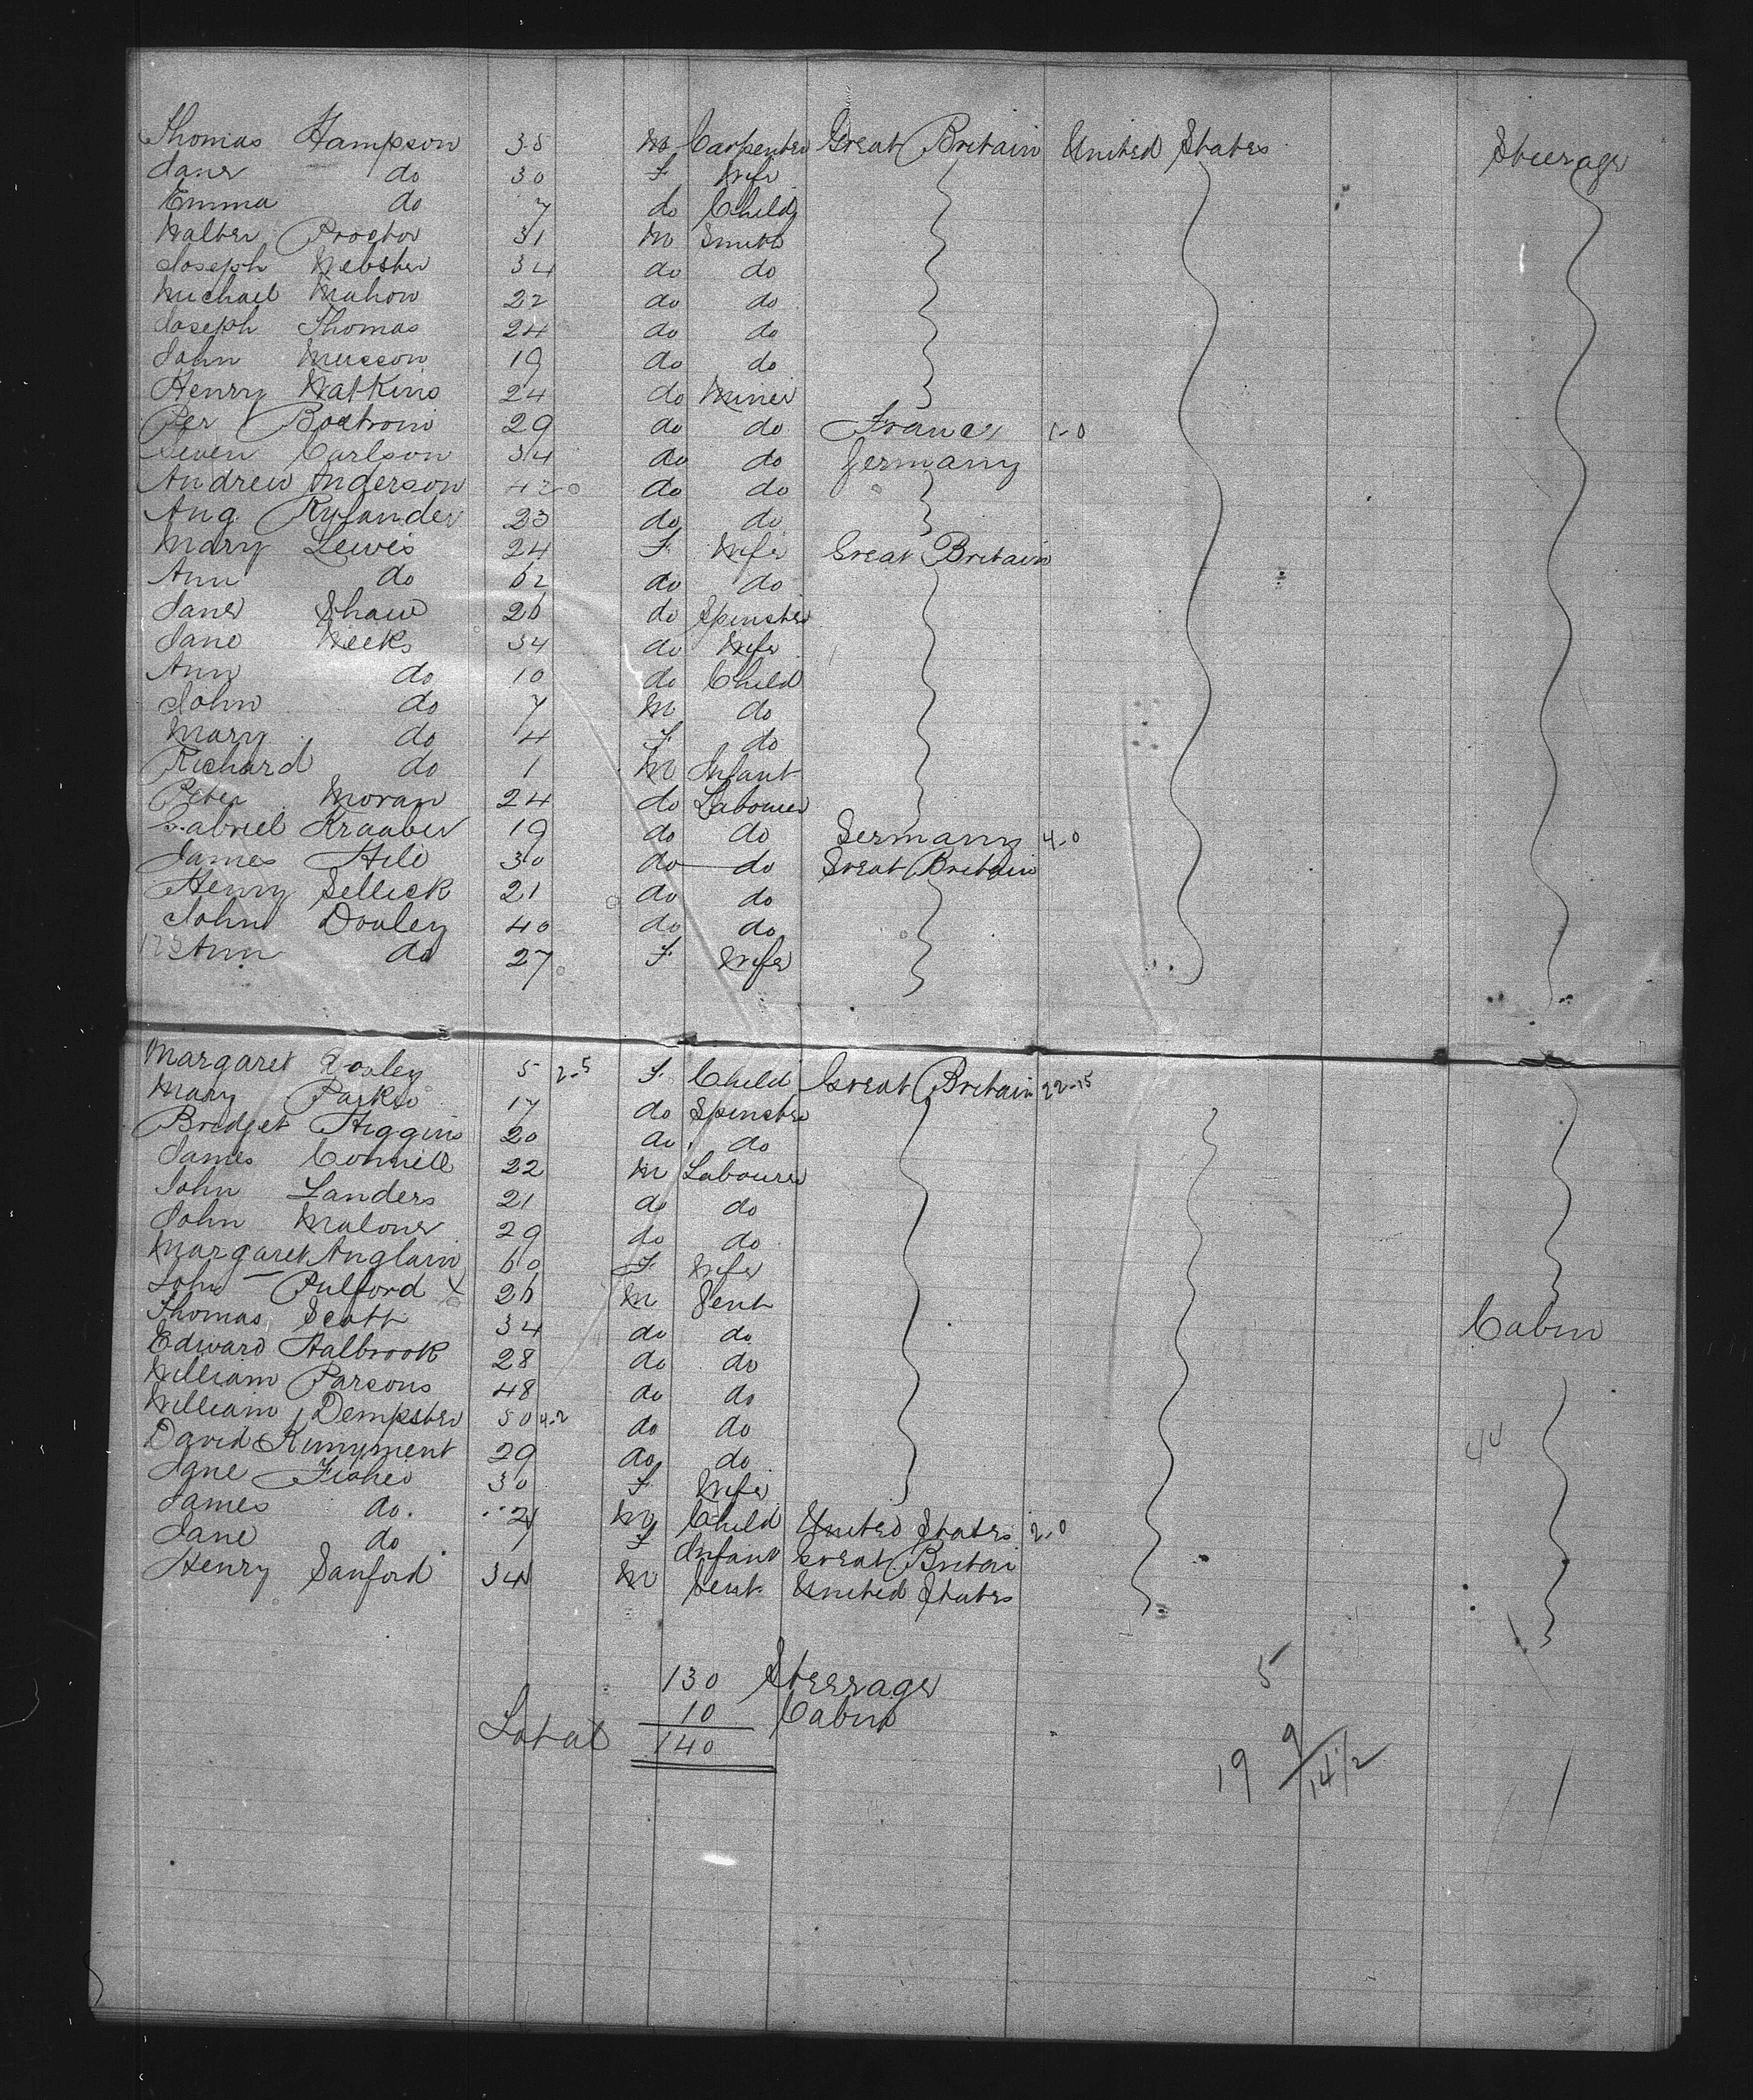 Thomas Hampson 35 M Carpenter Great Britain United States Steerage
Jane do 30 F Wife
Emma do 7 do Child
Walter Proctor 31 M Smith
Joseph Webster 34 do do
Michael Mahon 22 do do
Joseph Thomas 24 do do
John Musson 19 do do
Henry Watkins 24 do Miner
Per Bostrom 29 do do France 1-0
Seven Carlson 34 do do Germany
Andrew Anderson 42 do do
Aug Rylander 23 do do
Mary Lewis 24 F Wife Great Britain
Ann do 62 do do
Jane Shaw 26 do Spinster
Jane Weeks 34 do Wife
Ann do 10 do Child
John do 7 M do
Mary do 4 F do
Richard do 1 M Infant
Peter Moran 24 do Labourer
Gabriel Krauber 19 do do Germany 4-0
James Hill 30 do do Great Britain
Henry Sellick 21 do do
John Dooley 40 do do
Ann do 27 F Wife
Margaret Dooley 5 2-5 F Child Great Britain 22-15
Mary Parks 17 do Spinster
Bridget Higgins 20 do do
James Connell 22 M Labourer
John Landers 21 do do
John Malone 29 do do
Margaret Anglain 60 F Wife
John Pulford X 26 M Gent
Thomas Scott 34 do do Cabin
Edward Halbrook 28 do do
William Parsons 48 do do
William Dempster 50 4-2 do do
David 29 do do 44
Jane Fisher 30 F Wife
James do. 2 M Child United States 2-0
Jane do 1 F Infant Great Britain
Henry Sanford 34 M Gent United States
130 Steerage 5
10 Cabin
Total 140
19 9/14 1/2